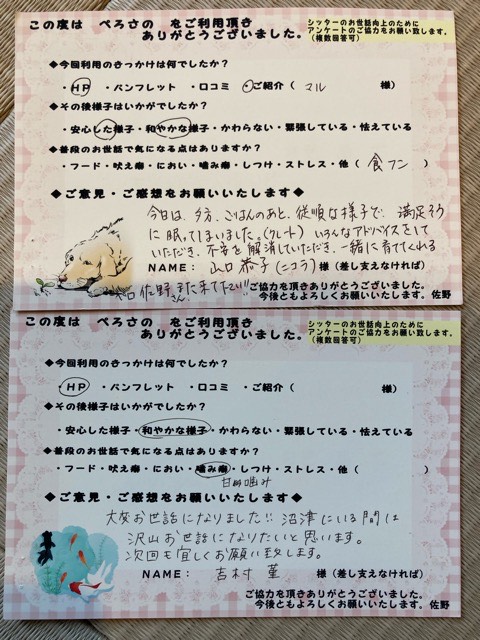 この度は ぺろさの をご利用頂き
ありがとうございました。
シッターのお世話向上のために
アンケートのご協力をお願い致します。
(複数回答可)
◆今回利用のきっかけは何でしたか?
・HP ・パンフレット ・口コミ ・ご紹介( マル 様)
◆その後様子はいかがでしたか?
・安心した様子・和やかな様子・かわらない・緊張している・怯えている
◆普段のお世話で気になる点はありますか?
・フード・吠え癖・におい・噛み癖・しつけ・ストレス・他( 食フン )
◆ご意見・ご感想をお願いいたします◆
今日は、夕方、ごはんのあと、従順な様子で、満足そう
に眠ってしまいました。(クレート) いろんなアドバイスをして
いただき、不安を解消していただき、一緒に育ててくれる
NAME: 山口 恭子(ニコラ) 様(差し支えなければ)
佐野さん、また来て下さい!!
ご協力を頂きありがとうございました。
今後ともよろしくお願い致します。佐野
この度は ぺろさの をご利用頂き
ありがとうございました。
シッターのお世話向上のために
アンケートのご協力をお願い致します。
(複数回答可)
◆今回利用のきっかけは何でしたか?
・HP ・パンフレット ・口コミ ・ご紹介( 様)
◆その後様子はいかがでしたか?
・安心した様子・和やかな様子・かわらない・緊張している・怯えている
◆普段のお世話で気になる点はありますか?
・フード・吠え癖・におい・噛み癖・しつけ・ストレス・他( )
甘噛み
◆ご意見・ご感想をお願いいたします◆
大変お世話になりました!! 沼津にいる間は
沢山お世話になりたいと思います。
次回も宜しくお願い致します。
NAME: 吉村 菫 様(差し支えなければ)
ご協力を頂きありがとうございました。
今後ともよろしくお願い致します。佐野